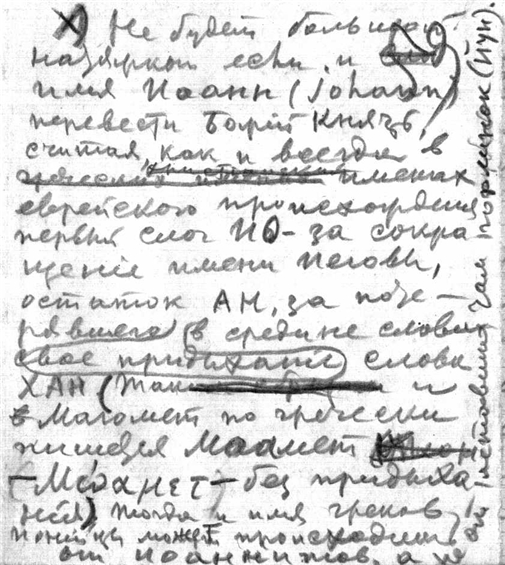 X) Не будет большой
натяжкой если и
имя Иоанн (Johann)
перевести Борис Князь,
считая, как и всегда в
именах
еврейского происхождения
первый слог ИО- за сокра-
щение имени Иеговы,
остаток АН, за поте-
рявшего в средине слова
свое придыхание слово
ХАН (так и
в Магомет по гречески
пишется Маамет
(-Μωάμετ)- без придыха-
ния), тогда и имя греков
может происходить
от Иоаннитов, а не